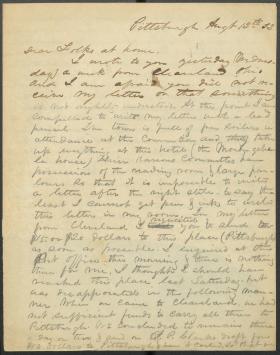 Pittsburgh Augt 12th 52
Dear Folks at home.
I wrote to you yesterday (Wednes-
day) a week from Cleaveland Ohio
And I am afraid you did not re-
ceive my letter on that
it was in pencil. At this point I am
compelled to write my letter with a lead
pencil. The town is full of
attendance at the Convention and they take
up every thing at this Hotel (the Mononghe-
la house) Their Various Committees has
possession of the reading room & large par-
lours So that it is impossible to write
a letter after the night sitters to say the
least I cannot get pen & ink to write
this letter in my room. In my letter
from Cleaveland I requested you to send
15 or 20 dollars to this place (Pittsburgh
as soon as possible. I enquired at the
Post office this morning & there is nothing
there for me, I thought I should have
reached this place last Saturday but
was disappointed in the following man-
ner When we came to Cleaveland, we had
not sufficient funds to carry all three to
Pittsburgh We concluded to remain there
a day or two &